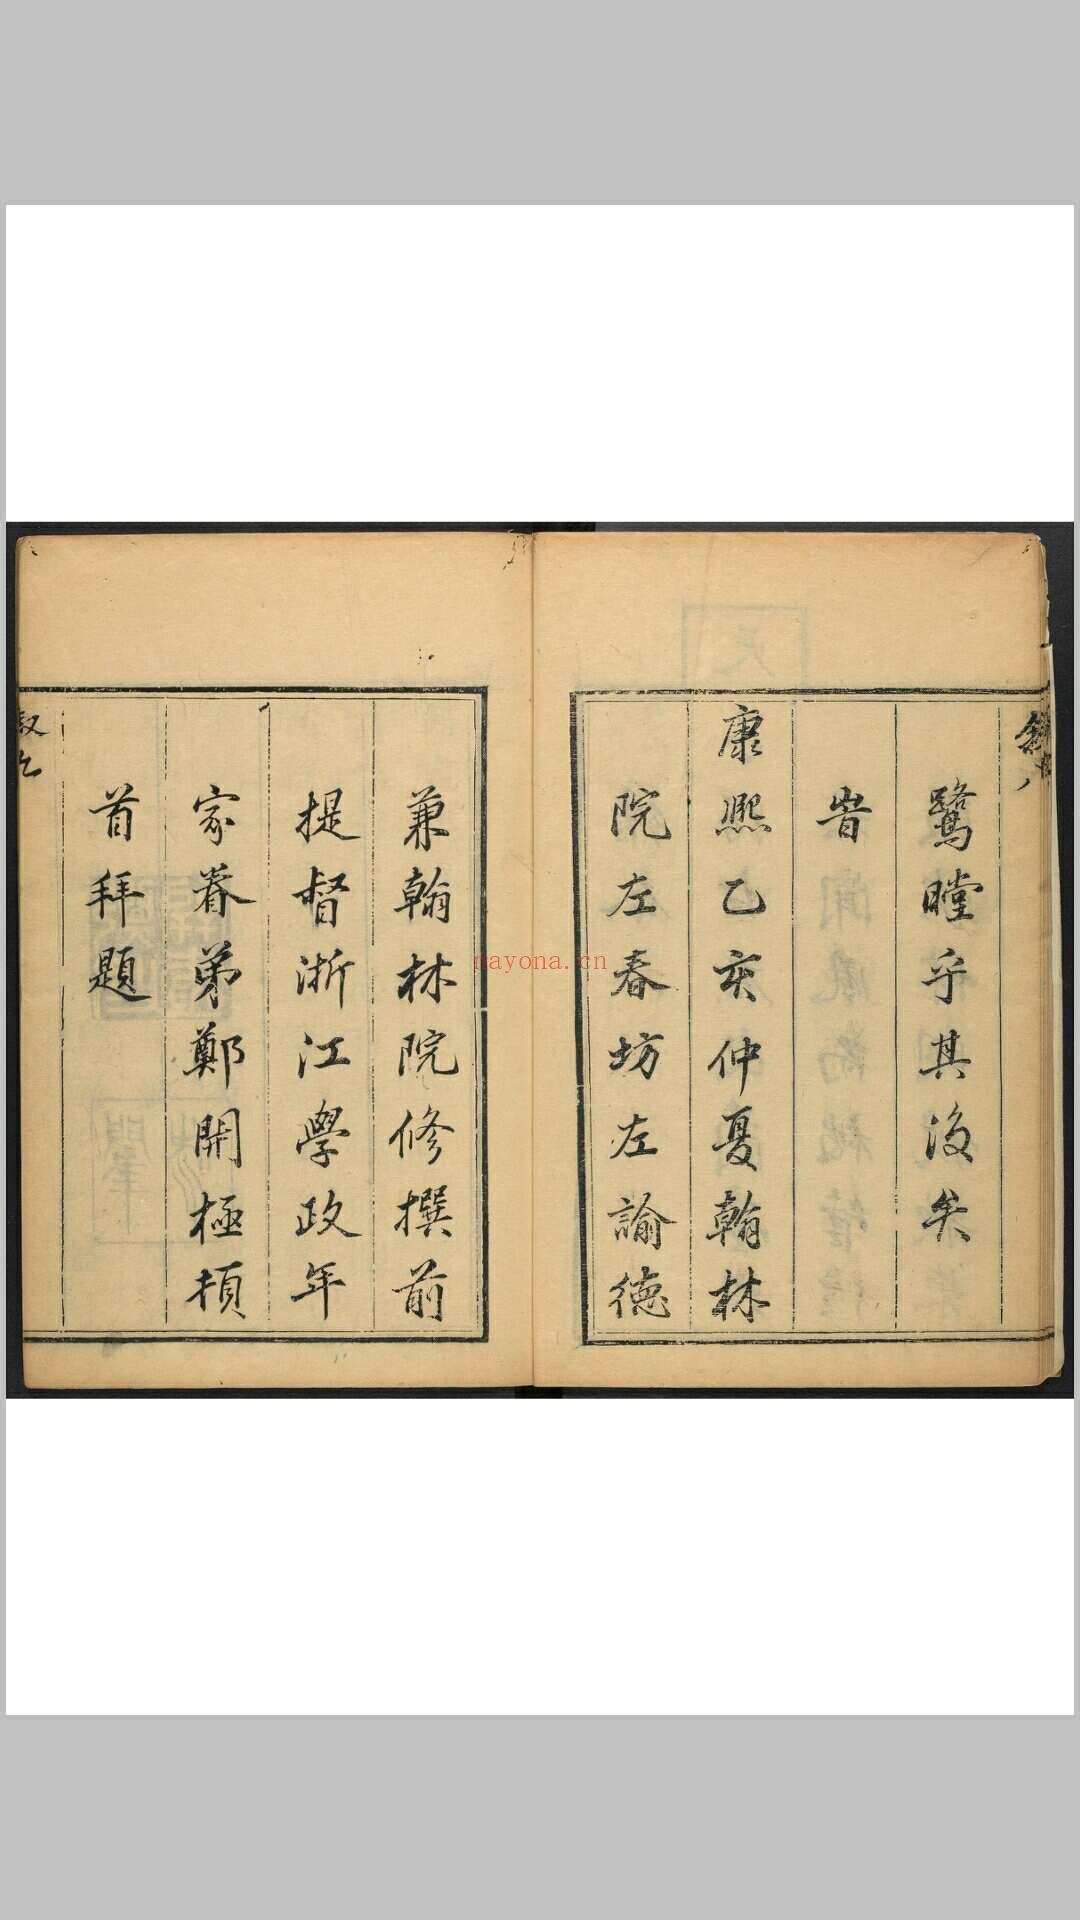 鷺瞠乎其後矣
旹
康熙乙亥仲夏翰林
院左春坊左諭德
兼翰林院修撰前
提督浙江學政年
家眷弟鄭開極頓
首拜題
nayona.cn